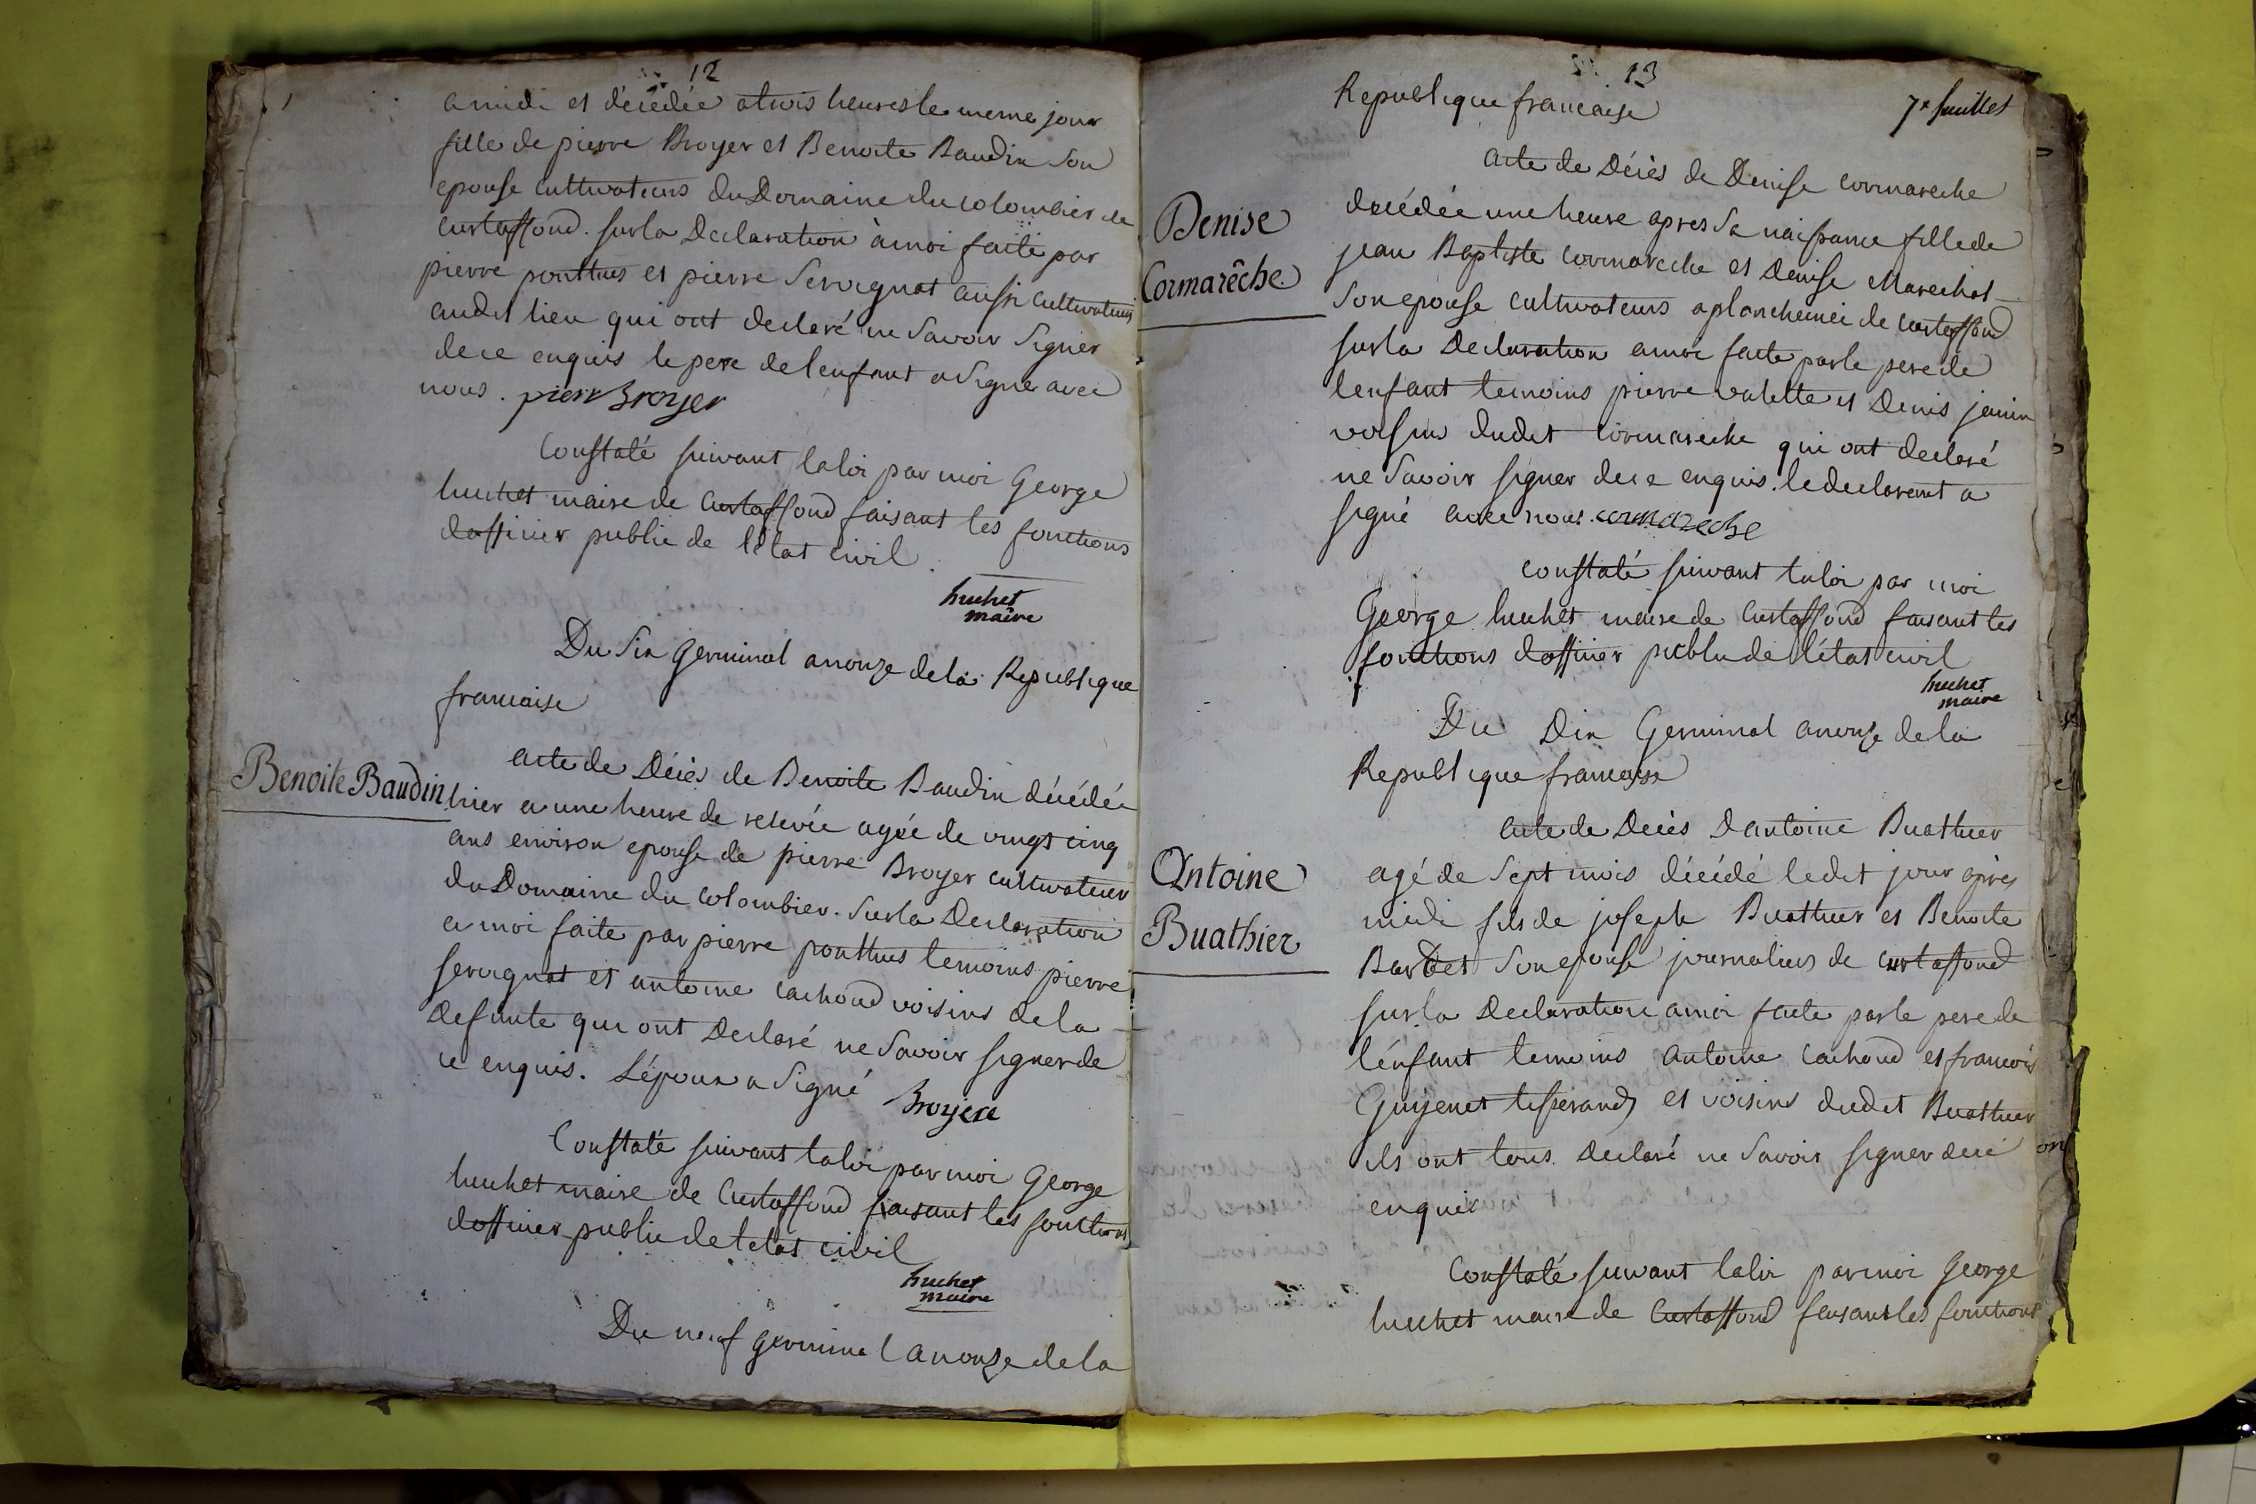 12
a midi et décédée a trois heures le meme jour
fille de pierre Broyer et Benoite Baudin son
epouse cultivateurs du Domaine du colombier de
Curtaffond. sur la Declaration à moi faite par
pierre pouthus et pierre Serognat aussi cultivateurs
audit lieu qui ont declaré ne savoir signer
de ce enquis le pere de lenfant a signé avec
nous. pierr Broyer
Constaté suivant la loi par moi George
huchet maire de Curtaffond faisant les fonctions
dofficier public de létat civil.
huchet
maire
Du Six Germinal an onze de la Republique
francaise
Benoite Baudin
acte de Décès de Benoite Baudin décédée
hier a une heure de relevée agée de vingt cinq
ans environ epouse de pierre Broyer cultivateur
du Domaine du colombier. sur la Declaration
a moi faite par pierre pouthus temoins pierre
serognat et antoine cachoud voisins de la
Defunte qui ont Declaré ne savoir signer de
ce enquis. L'époux a signé
Broyer
Constaté suivant la loi par moi George
huchet maire de Curtaffond faisant les fonctions
dofficier public de letat civil
huchet
maire
Du neuf germinal an onze de la
13
7e feuillet
Republique francaise
Denise
Cormarêche
acte de Décès de Denise cormareche
decédée une heure apres sa naissance fille de
jean Baptiste cormareche et Denise Marechal
son epouse cultivateurs a plancheméé de curtaffond
sur la Declaration a moi faite par le pere de
lenfant temoins pierre valette et Denis janin
voisins dudit cormareche qui ont declaré
ne savoir signer de ce enquis. le declarant a
signé avec nous. cormareche
constaté suivant la loi par moi
George huchet maire de Curtaffond faisant les
fonctions dofficier public de l'état civil
huchet
maire
Du Dix Germinal an onze de la
Republique francaise
Antoine
Buathier
acte de Decès Dantoine Buathier
agé de sept mois décédé ledit jour après
midi fils de joseph Buathier et Benoite
Barbet son epouse journaliers de curtaffond
sur la Declaration a moi faite par le pere de
l'énfant temoins antoine cachoud et francois
Guyenet tisserands et voisins dudit Buathier
ils ont tous Declaré ne savoir signer de ce
enquis
Constaté suivant la loi par moi George
huchet maire de Curtaffond faisant les fonctions